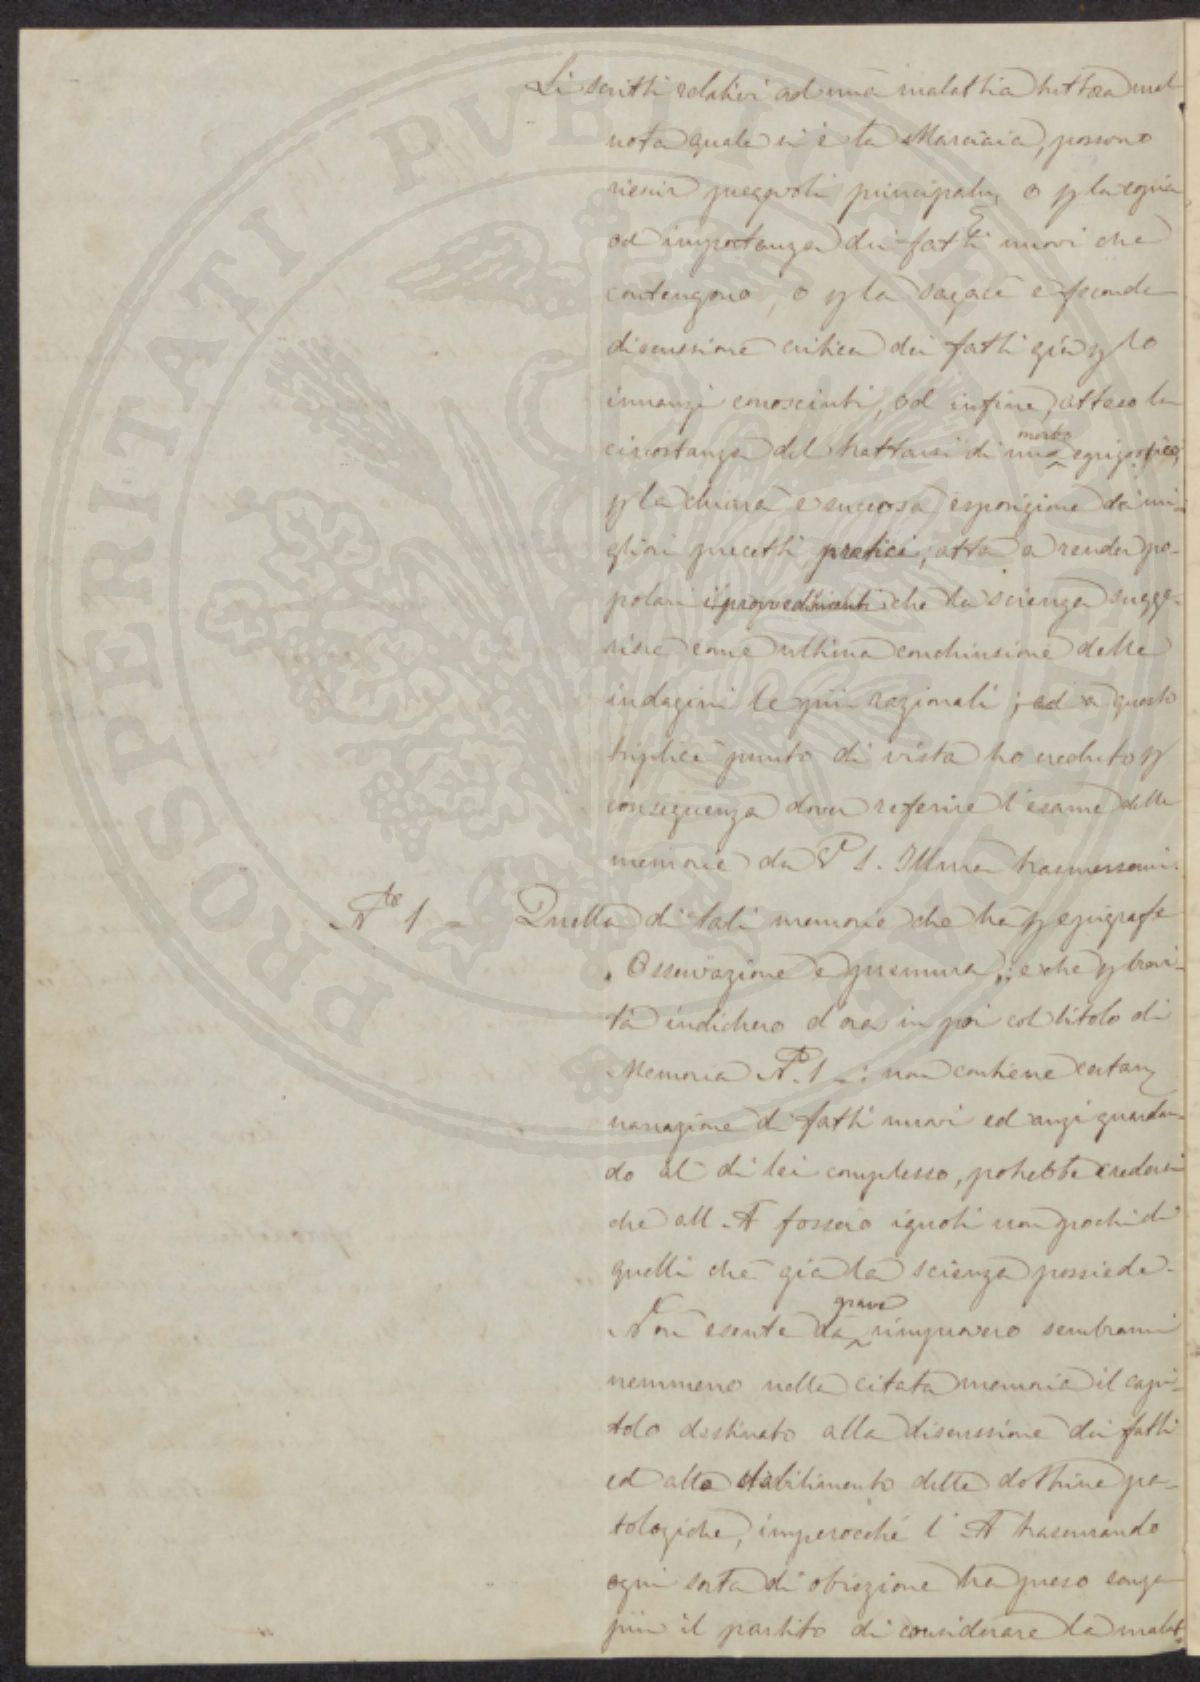 Li scritti relativi ad una malattia tuttora mal
nota quale si è la Marciaia, possono
riescir pregevoli principalm o p la copia,
od importanza dei fatti nuovi che
contengono, o p la sagace e feconda
discussione critica dei fatti già p lo
innanzi conosciuti, od infine, atteso la
circostanza del trattarsi di morbo epizootico,
p la chiara e succosa esposizione dei mi-
gliori precetti pratici, atta a render po-
polari i provvedimenti che la scienza sugge-
risce come ultima conchiusione delle
indagini le più razionali; ed a questo
triplice punto di vista ho creduto p
conseguenza dover referire l'esame delle
memorie da V S. Illma trasmessemi.
N° 1 = Quella di tali memorie che ha p epigrafe
"Osservazione e premura"; e che p brevi-
tà indicherò d'ora in poi col titolo di
Memoria N° 1 =: non contiene certam
narrazione di fatti nuovi ed anzi guardan-
do al di lei complesso, potrebbe credersi
che all'A fossero ignoti non pochi di
quelli che già la scienza possiede.
Non esente da grave rimprovero sembrami
nemmeno nella citata memoria il capi-
tolo destinato alla discussione dei fatti
ed allo stabilimento delle dottrine pa-
tologiche, imperocché l'A trascurando
ogni sorta di obiezione ha preso senza
più il partito di considerare la malat
PROSPERITATI PVBLICAE